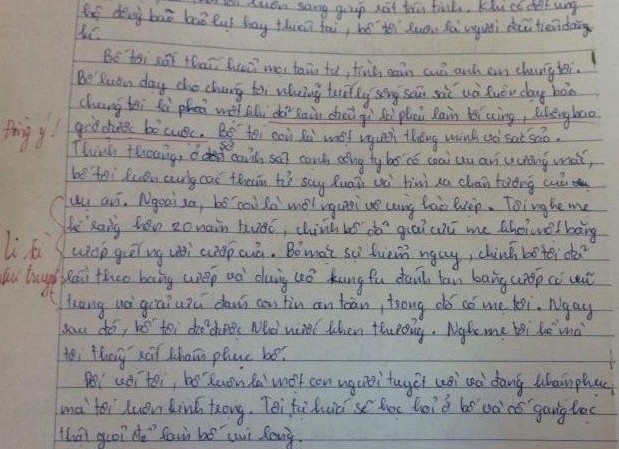 luôn sang giúp rất tận tình. Khi có đợt ủng
hộ đồng bào bão lụt hay thiên tai, bố tôi luôn là người đầu tiên đăng
kí.
Bố tôi rất thấu hiểu mọi tâm tư, tình cảm của anh em chúng tôi.
Bố luôn dạy cho chúng tôi những triết lý sống sâu sắc và luôn dạy bảo
chúng tôi là phải một khi đã làm điều gì là phải làm tới cùng, không bao
giờ được bỏ cuộc. Bố tôi còn là một người thông minh và sắc sảo.
Đồng ý!
Thỉnh thoảng, ở sở cảnh sát cạnh công ty bố có vài vụ án vướng mắc,
bố tôi luôn cùng các thám tử suy luận và tìm ra chân tướng của
vụ án. Ngoài ra, bố còn là một người vô cùng hào hiệp. Tôi nghe mẹ
kể rằng hơn 20 năm trước, chính bố đã giải cứu mẹ khỏi một băng
cướp giết người cướp của. Bỏ mặc sự hiểm nguy, chính bố tôi đã
lần theo băng cướp và dùng võ kung fu đánh tan băng cướp có vũ
trang và giải cứu đám con tin an toàn, trong đó có mẹ tôi. Ngay
sau đó, bố tôi đã được Nhà nước khen thưởng. Nghe mẹ tôi kể mà
tôi thấy rất khâm phục bố.
Đối với tôi, bố luôn là một con người tuyệt vời và đáng khâm phục
mà tôi luôn kính trọng. Tôi tự hứa sẽ học hỏi ở bố và cố gắng học
thật giỏi để làm bố vui lòng.